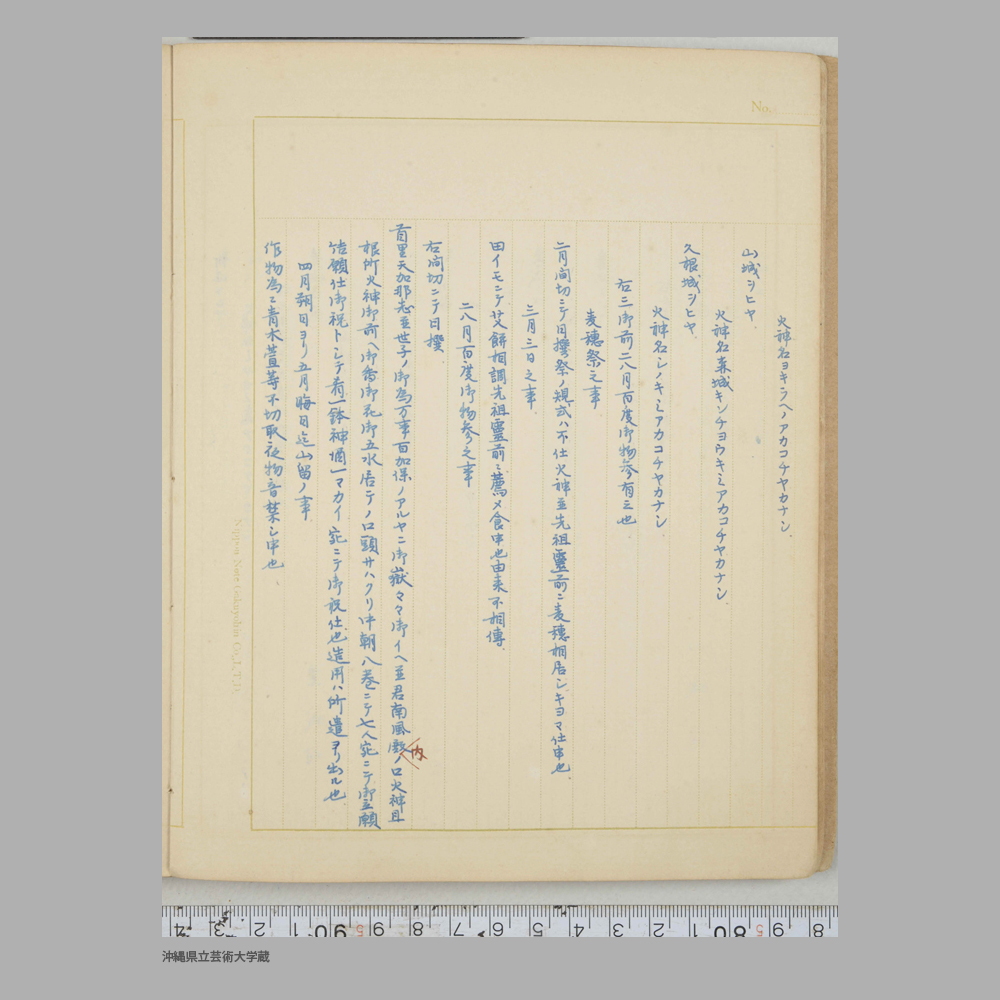 No.
火神名ヨキラヘノアカコチヤカナシ、
山城ヲヒヤ、
火神名森城キシチヨウキミアカコチヤカナシ、
久根城ヲヒヤ
火神名シノキミアカコチヤカナシ
右三御前二八月百度御物参有之也
麦穂祭之事
二月間切ニテ日撰祭ノ規式ハ不仕火神並先祖霊前ニ麦穂相居シキヨマ仕申也、
三月三日之事
田イモニテ艾餅相調先祖霊前ニ薦メ食申也由来不相傳、
二八月百度御物参之事
右間切ニテ日撰
首里天加那志並世子ノ御為万事百加保ノアルヤニ御嶽々々御イヘ並君南風殿内ノ口火神且
根所火神御前ヘ御香御花御五水居テノロ頭サハクリ中朝八巻ニテ七人宛ニテ御立願
結願仕御祝トシテ肴一鉢神酒一マカイ宛ニテ御祝仕也造用ハ所遣ヨリ出ル也、
四月朔日ヨリ五月晦日迄山留ノ事
作物為ニ青木萱等不切取夜物音禁シ申也、
Nippon Note Gakuyohin Co., LTD.
沖縄県立芸術大学蔵